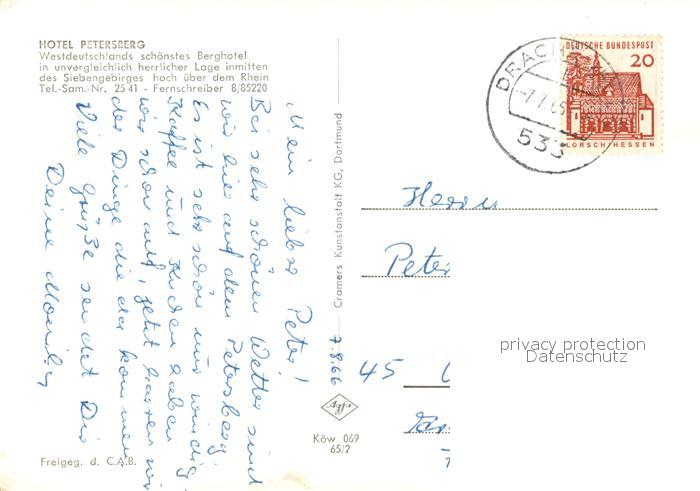 HOTEL PETERSBERG
Westdeutschlands schönstes Berghotel
in unvergleichlich herrlicher Lage inmitten
des Siebengebirges hoch über dem Rhein
Tel.-Sam.-Nr. 25 41 - Fernschreiber 8/85220
Mein lieber Peter!
Bei sehr schönen Wetter sind
wir hier auf dem Petersberg.
Es ist sehr schön nur windig
Kaffee und Kuchen haben
wir schon auf, jetzt harren wir
der Dinge die da kommen
Viele Grüße sendet Dir
Deine
Freigeg. d. C.A.B.
Cramers Kunstanstalt KG, Dortmund
7.8.66
Agfa
Köw 069
65/2
DEUTSCHE BUNDESPOST
20
LORSCH/HESSEN
533
Herrn
Peter
45
privacy protection
Datenschutz